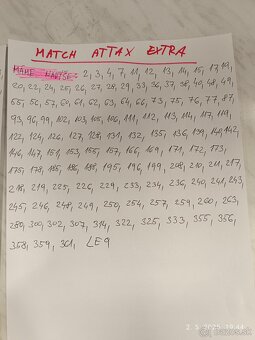 MATCH ATTAX EXTRA
MÁME NAVYŠE: 2, 3, 4, 7, 11, 12, 13, 14, 15, 17, 19,
20, 22, 24, 25, 26, 27, 28, 29, 33, 36, 37, 38, 40, 48, 49,
55, 56, 57, 60, 61, 62, 63, 64, 66, 73, 75, 76, 77, 87,
93, 96, 99, 102, 103, 105, 106, 111, 112, 113, 114, 117, 119,
122, 124, 126, 127, 128, 131, 132, 135, 136, 139, 140, 142,
146, 147, 151, 153, 155, 157, 166, 169, 171, 172, 173,
175, 178, 185, 186, 188, 195, 196, 199, 208, 210, 211, 217,
218, 219, 225, 226, 229, 233, 234, 236, 240, 241, 243,
245, 246, 248, 249, 250, 254, 257, 259, 260, 263,
280, 300, 302, 307, 314, 322, 325, 333, 355, 356,
358, 359, 361, LE9
2. 5. 2025 19:44